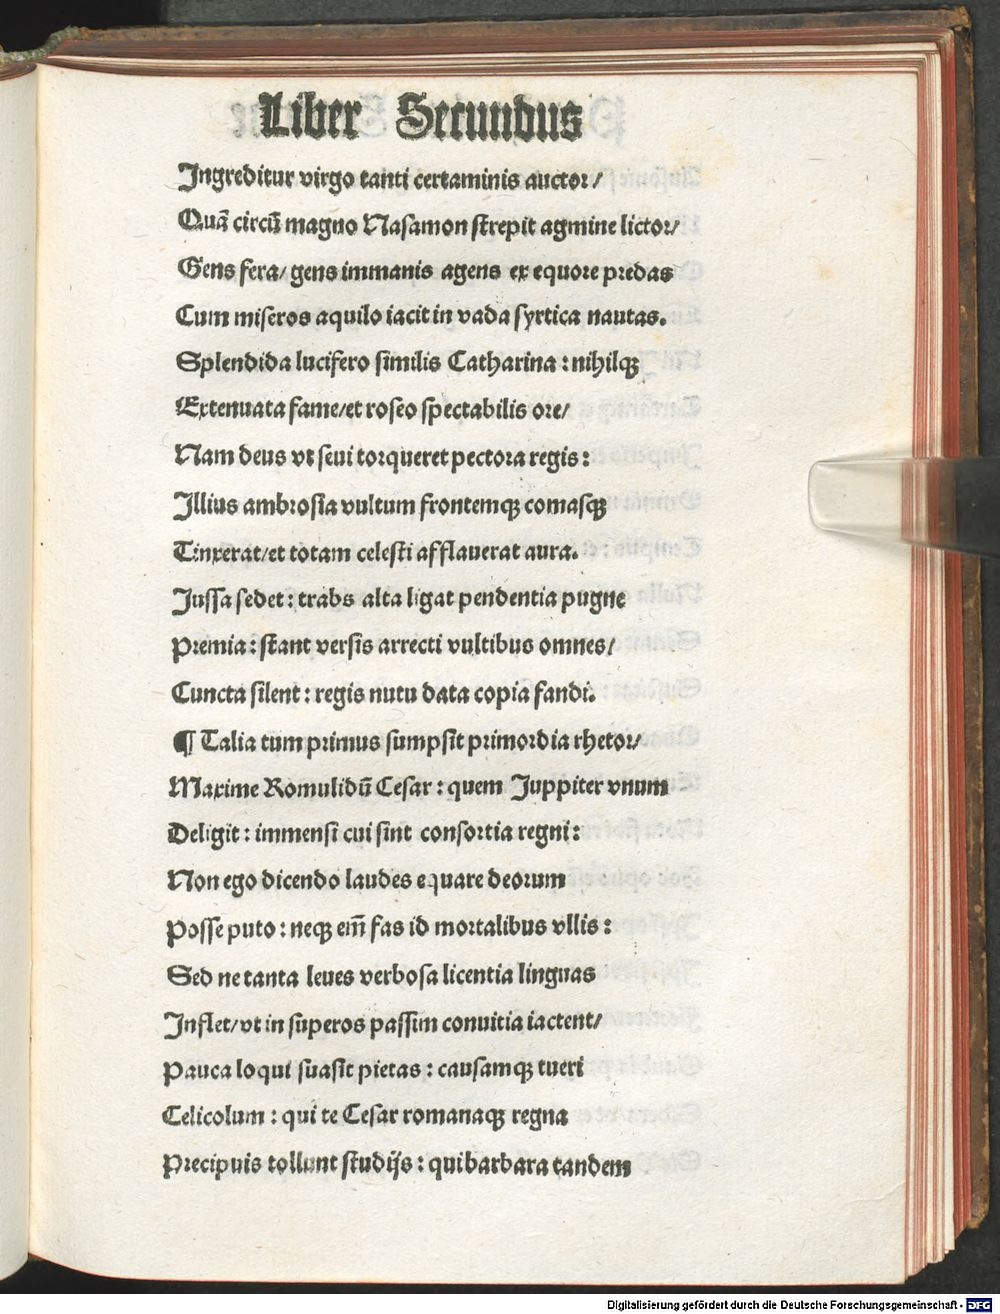 Liber Secundus
Ingreditur virgo tanti certaminis auctor/
Quā circū magno Nasamon strepit agmine lictor/
Gens fera/ gens immanis agens ex equore predas
Cum miseros aquilo iacit in vada syrtica nautas.
Splendida lucifero similis Catharina : nihilqꝫ
Extenuata fame/et roseo spectabilis ore/
Nam deus vt seui torqueret pectora regis :
Illius ambrosia vultum frontemqꝫ comasqꝫ
Tinxerat/et totam celesti afflauerat aura.
Jussa sedet : trabs alta ligat pendentia pugne
Premia : stant versis arrecti vultibus omnes/
Cuncta silent : regis nutu data copia fandi.
¶ Talia tum primus sumpsit primordia rhetor/
Maxime Romulidū Cesar : quem Juppiter vnum
Deligit : immensi cui sint consortia regni :
Non ego dicendo laudes equare deorum
Posse puto : neqꝫ em̄ fas id mortalibus vllis :
Sed ne tanta leues verbosa licentia linguas
Inflet/vt in superos passim conuitia iactent/
Pauca loqui suasit pietas : causamqꝫ tueri
Celicolum : qui te Cesar romanaqꝫ regna
Precipuis tollunt studijs : qui barbara tandem
Digitalisierung gefördert durch die Deutsche Forschungsgemeinschaft - DFG